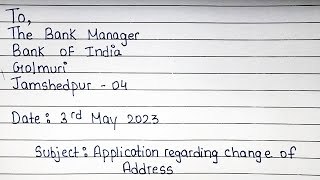 To,
The Bank Manager
Bank of India
Golmuri
Jamshedpur - 04
Date: 3rd May 2023
Subject: Application regarding change of
Address